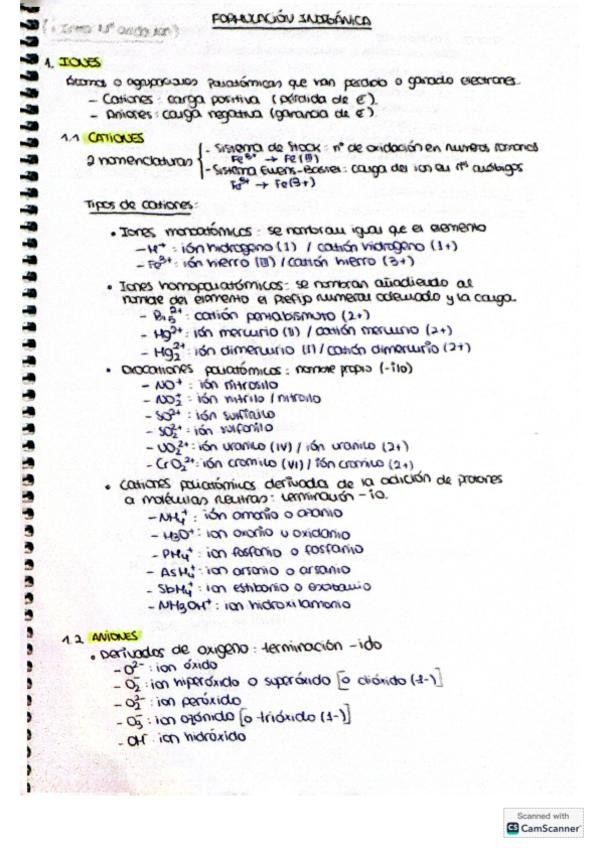 FORMULACIÓN INORGÁNICA
1. IONES
Átomos o agrupaciones poliatómicas que han perdido o ganado electrones.
– Cationes: carga positiva (pérdida de e⁻).
– Aniones: carga negativa (ganancia de e⁻)
1.1 CATIONES
2 nomenclaturas
- Sistema de Stock: nº de oxidación en números romanos
Fe³⁺ → Fe(III)
- Sistema Ewens-Basset: carga del ion en nºs arábigos
Fe³⁺ → Fe(3+)
Tipos de cationes:
• Iones monoatómicos: se nombran igual que el elemento
– H⁺: ión hidrogeno (I) / catión hidrogeno (1+)
– Fe³⁺: ión hierro (III) / catión hierro (3+)
• Iones homopoliatómicos: se nombran añadiendo al
nombre del elemento el prefijo numeral adecuado y la carga.
– Bi₅²⁺: catión pentabismuto (2+)
– Hg²⁺: ión mercurio (II) / catión mercurio (2+)
– Hg₂²⁺: ión dimercurio (I) / catión dimercurio (2+)
• Oxocationes poliatómicos: nombre propio (-ilo)
– NO⁺: ión nitrosilo
– NO₂⁺: ión nitrilo / nitroilo
– SO²⁺: ión sulfinilo
– SO₂²⁺: ión sulfonilo
– UO₂²⁺: ión uranilo (IV) / ión uranilo (2+)
– CrO₂²⁺: ión cromilo (VI) / ión cromilo (2+)
• Cationes poliatómicos derivada de la adición de protones
a moléculas neutras: terminación -io.
– NH₄⁺: ión amonio o azanio
– H₃O⁺: ion oxonio u oxidanio
– PH₄⁺: ion fosfonio o fosfanio
– AsH₄⁺: ion arsonio o arsanio
– SbH₄⁺: ion estibonio o
– NH₃OH⁺: ion hidroxilamonio
1.2 ANIONES
• Derivados de oxigeno: terminación -ido
– O²⁻: ion óxido
– O₂⁻: ion hiperóxido o superóxido [o dióxido (1-)]
– O₂²⁻: ion peróxido
– O₃⁻: ion ozónido [o trióxido (1-)]
– OH⁻: ion hidróxido
Scanned with
CS CamScanner